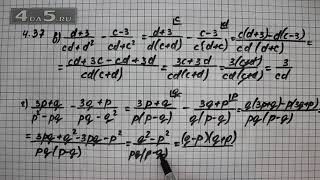 4DA5.RU
4.37 в) d+3/cd+d² - c-3/cd+c² = d+3/d(c+d) - c-3/c(d+c) = c(d+3)-d(c-3)/cd(d+c) =
= cd+3c-cd+3d/cd(c+d) = 3c+3d/cd(c+d) = 3(c+d)/cd(c+d) = 3/cd
3p+q/p²-pq - 3q+p/pq-q² = 3p+q/p(p-q) - 3q+p/q(p-q) = q(3p+q)-p(3q+p)/pq(p-q) =
= 3pq+q²-3pq-p²/pq(p-q) = q²-p²/pq(p-q) = (q-p)(q+p)